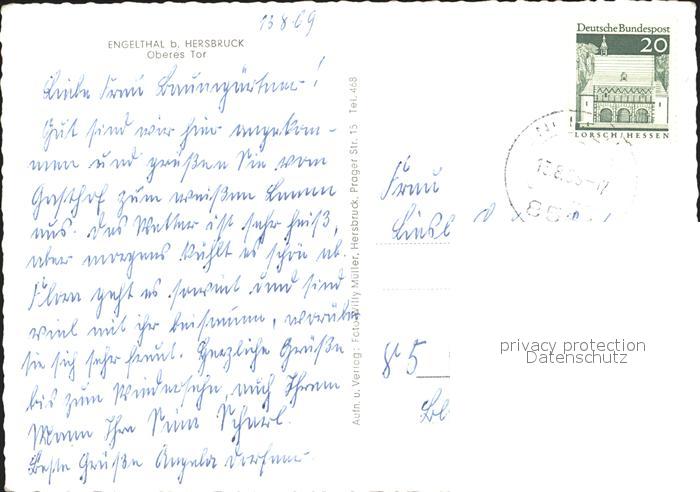 13.8.69
ENGELTHAL b. HERSBRUCK
Oberes Tor
Liebe Frau Baumgärtner!
Gut sind wir hier angekom-
men und grüßen Sie vom
Gasthof zum weißen Lamm
aus. Das Wetter ist sehr heiß,
aber morgens kühlt es schön ab.
geht es soweit und sind
viel mit ihr beisammen, worüber
sie sich sehr freut. Herzliche Grüße
bis zum Wiedersehn, auch Ihrem
Mann Ihre
Beste Grüße Angela
Aufn. u. Verlag: Foto-Willy Müller, Hersbruck, Prager Str. 15 Tel. 468
Deutsche Bundespost
20
LORSCH/HESSEN
Frau
85
privacy protection
Datenschutz